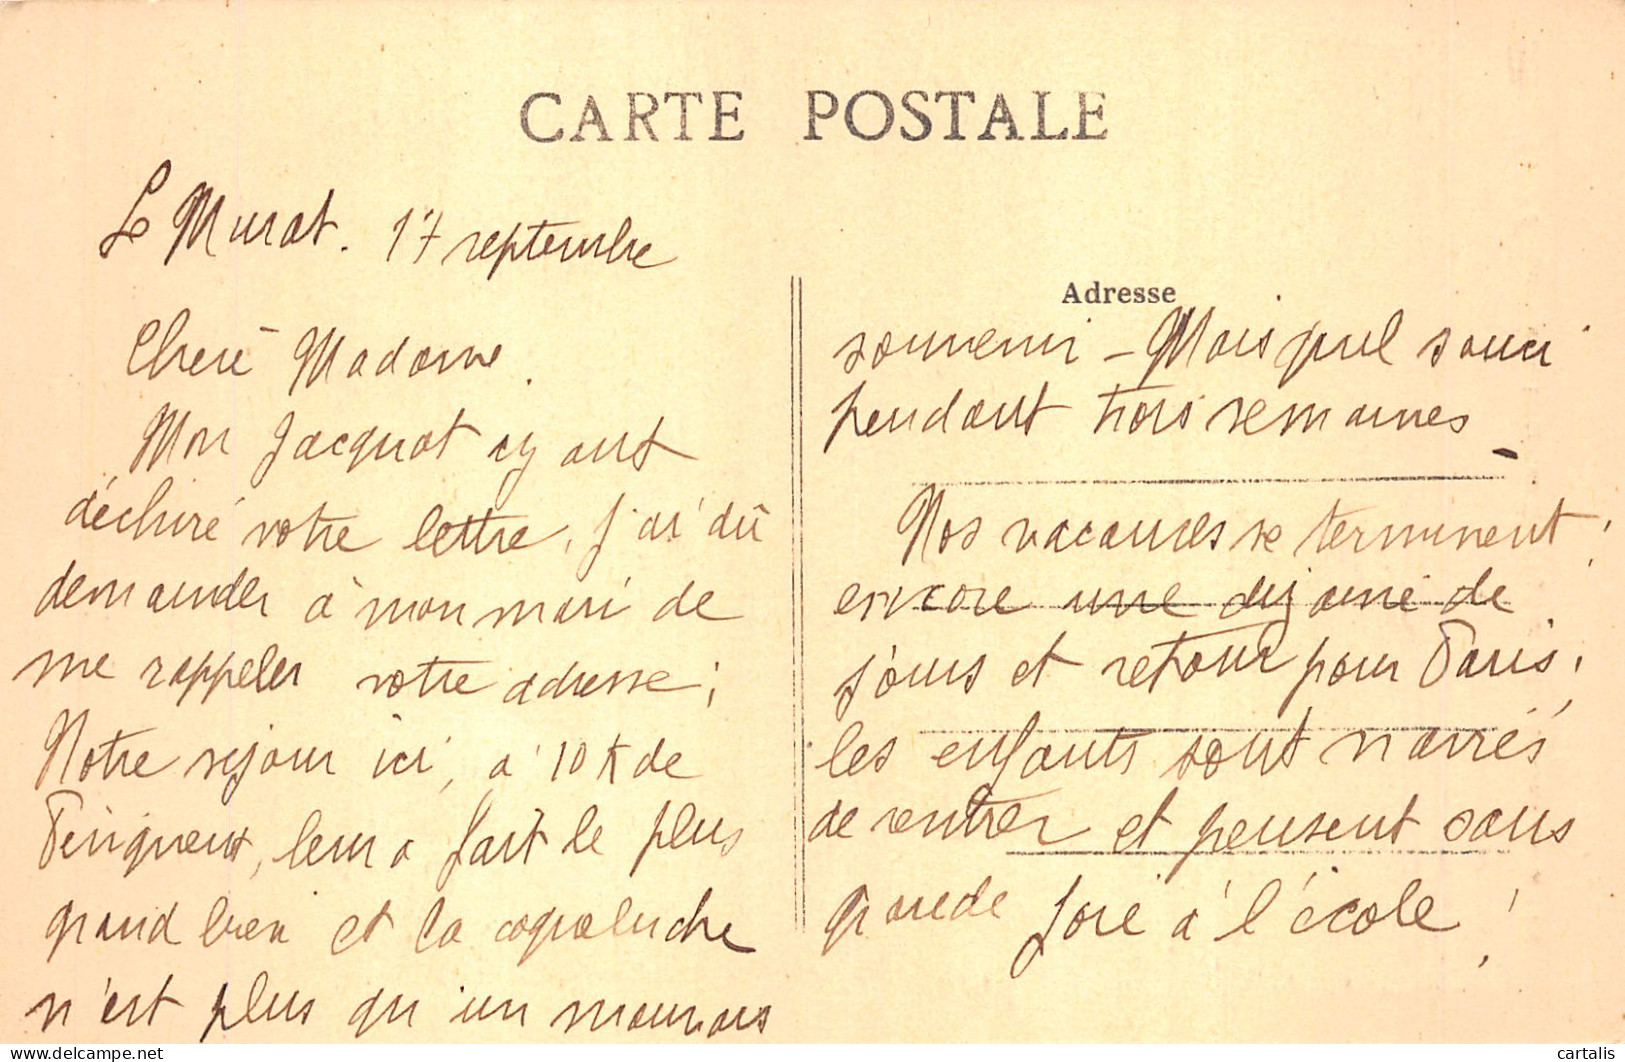 CARTE POSTALE
Le Murat. 17 septembre
Chère Madame.
Mon Jacquot ayant
déchiré votre lettre, j'ai dû
demander à mon mari de
me rappeler votre adresse ;
Notre séjour ici, à 10 K de
Périgueux, leur a fait le plus
grand bien et la coqueluche
n'est plus qu'un mauvais
Adresse
souvenir - Mais quel souci
pendant trois semaines -
Nos vacances se terminent ;
encore une dizaine de
jours et retour pour Paris,
les enfants sont navrés
de rentrer et pensent sans
grande joie à l'école !
cartalis